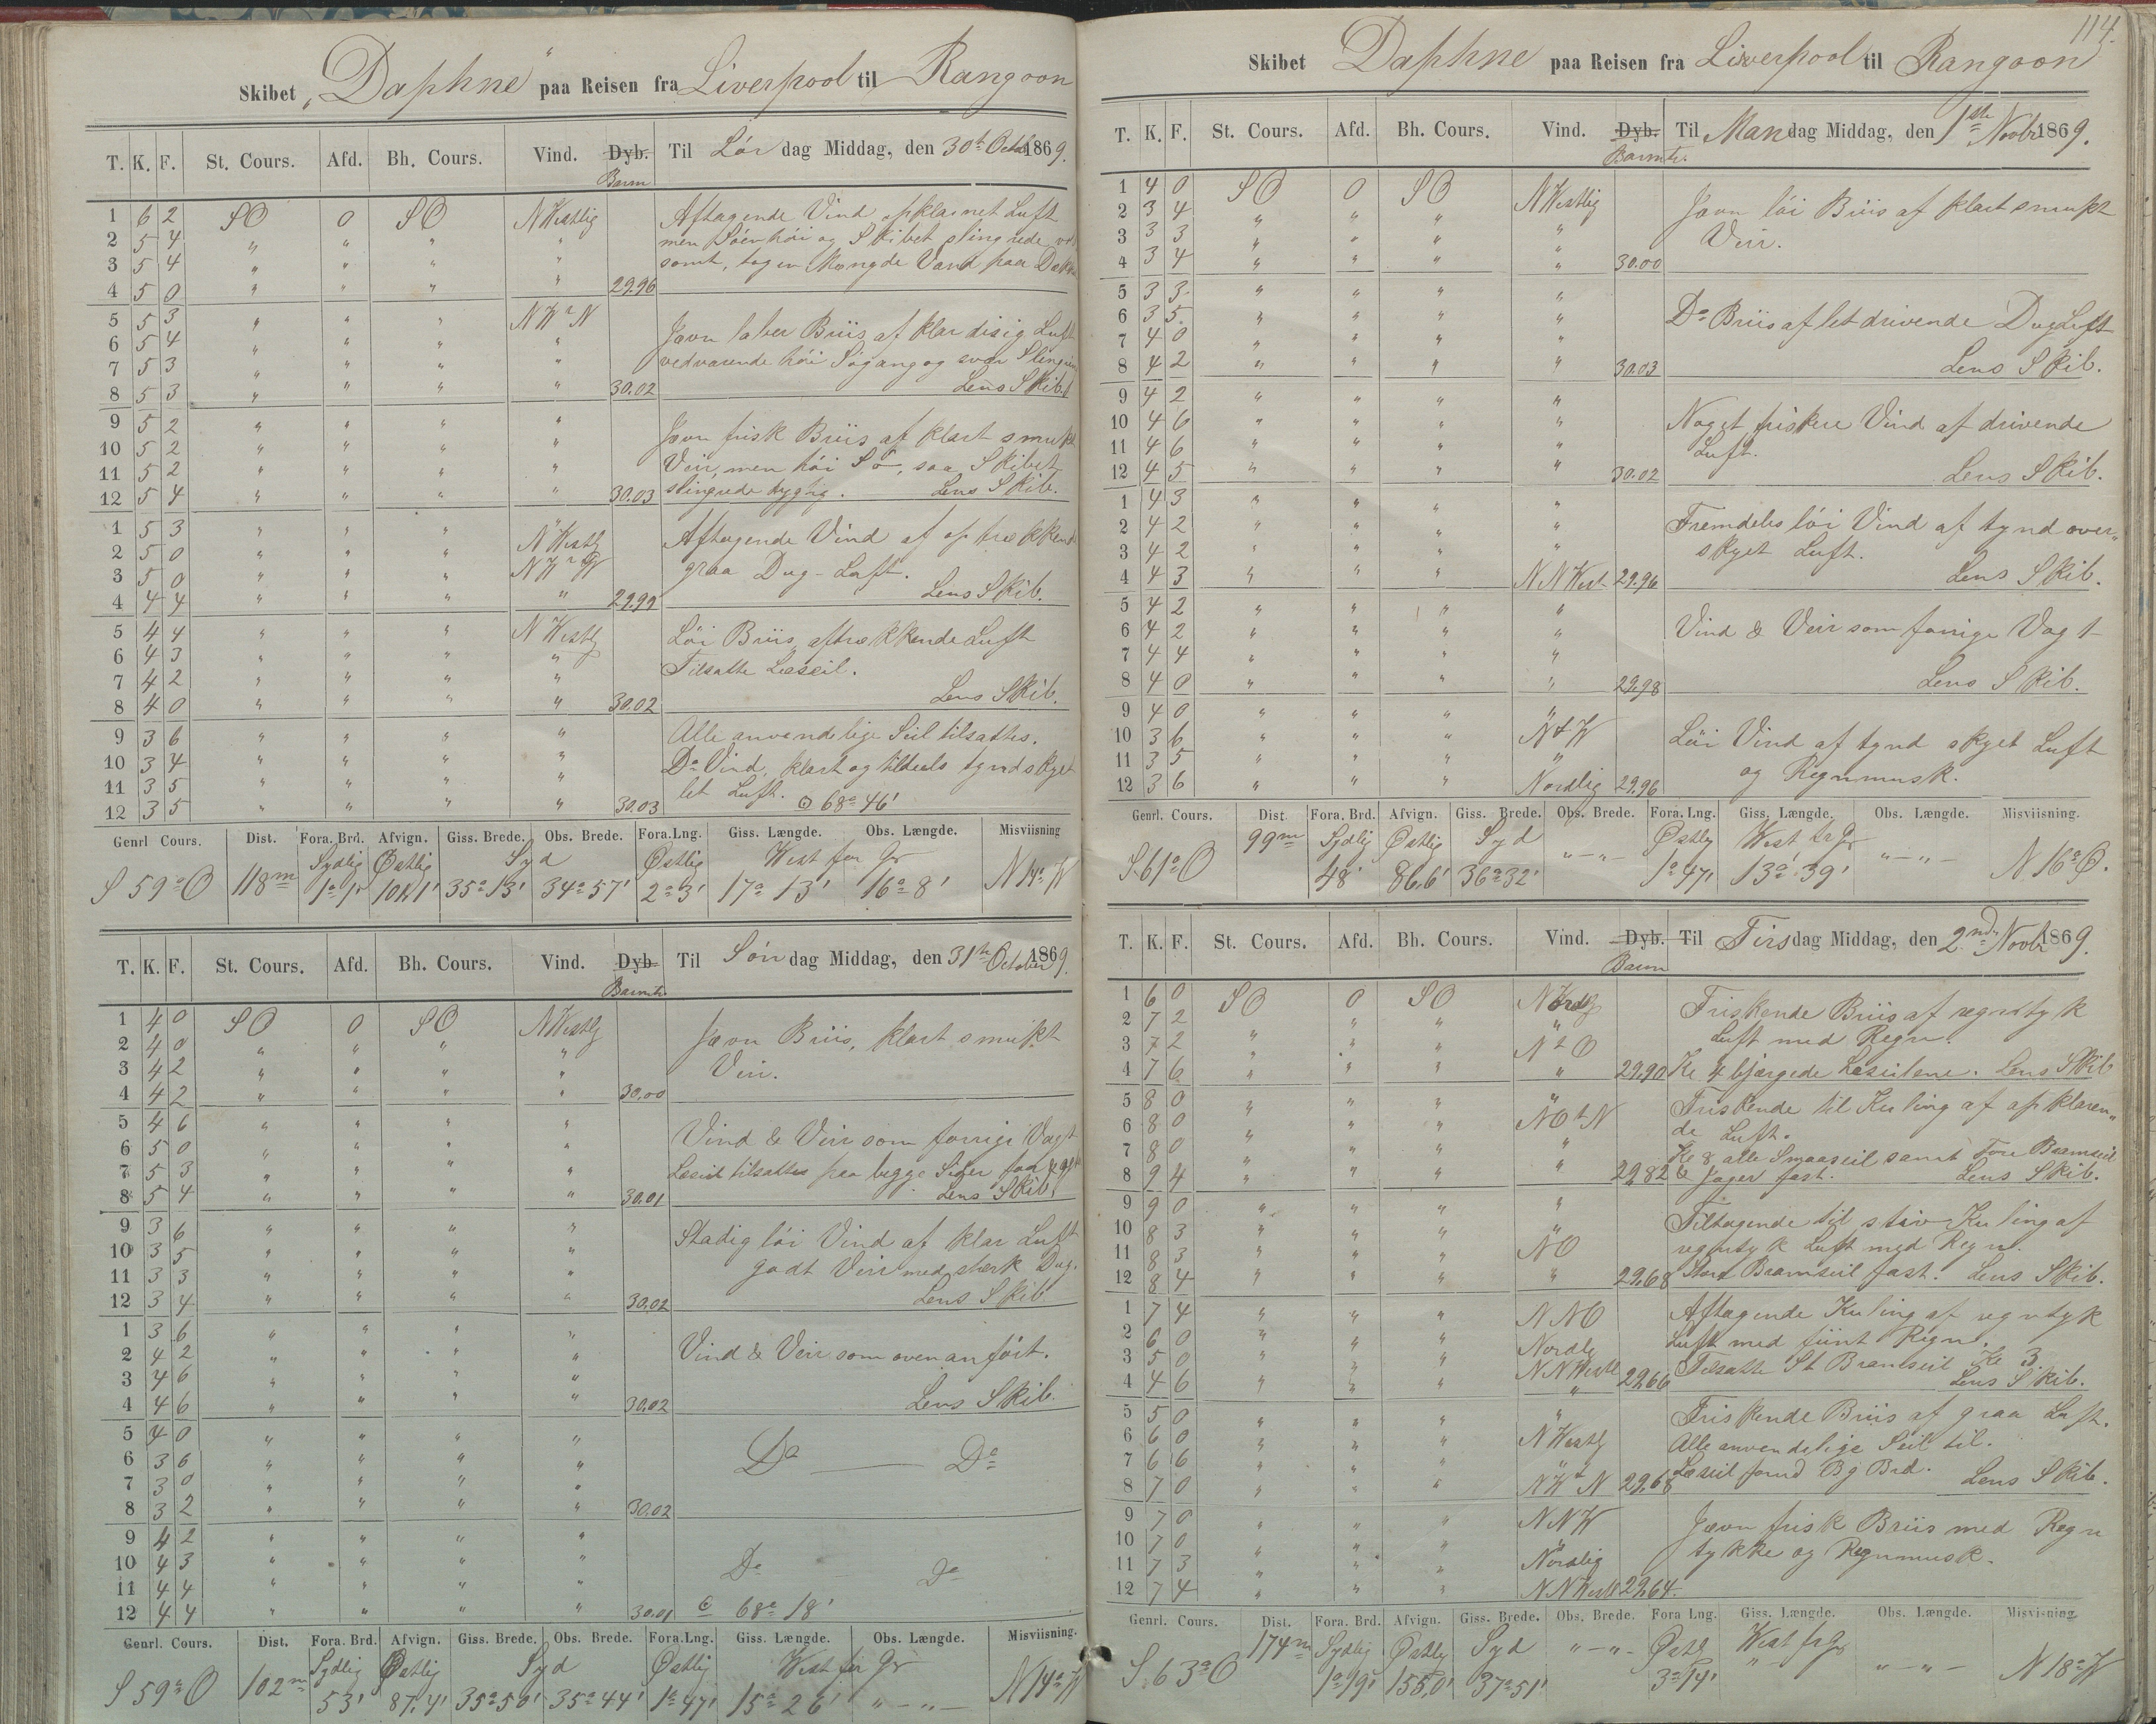 Skibet „Daphne“ paa Reisen fra Liverpool til Rangoon
T. K. F. St. Cours. Afd. Bh. Cours. Vind. Dyb. Til Lör dag Middag, den 30te Octob 1869.
Barm
1 6 2 SO 0 SO NWestlig Aftagende Vind opklarnet Luft
2 5 4 " " " " men Söen höi og Skibet slingrede
3 5 4 " " " " somt, tog en Mængde Vand paa Dæk
4 5 0 " " " " 29.96
5 5 3 " " " NWtN
6 5 4 " " " " Jævn laber Briis af klar disig Luft
7 5 3 " " " " vedvarende höi Sögang og svær Slingring
8 5 3 " " " " 30.02 Lens Skib.
9 5 2 " " " "
10 5 2 " " " " Jævn frisk Briis af klart smukt
11 5 2 " " " " Veir, men höi Sö, saa Skibet
12 5 4 " " " " 30.03 slingrede dygtig. Lens Skib.
1 5 3 " " " "
2 5 0 " " " NWestlg Aftagende Vind af optrækkende
3 5 0 " " " NWtW graa Dug-Luft.
4 4 4 " " " " 29.99 Lens Skib.
5 4 4 " " " NWestlg Löi Briis, aftrækkende Luft
6 4 3 " " " " Tilsatte Læseil.
7 4 2 " " " "
8 4 0 " " " " 30.02 Lens Skib.
9 3 6 " " " " Alle anvendelige Seil tilsattes.
10 3 4 " " " " Do Vind, klart og tildeels tyndskyet
11 3 5 " " " " let Luft. ⊙ 68° 46'
12 3 5 " " " " 30.03
Genrl Cours. Dist. Fora. Brd. Afvign. Giss. Brede. Obs. Brede. Fora. Lng. Giss. Længde. Obs. Længde. Misviisning
Sydlig Østlig Syd Østlig West for Gr
S 59° O 118m 1° 1' 101,1' 35° 13' 34° 57' 2° 3' 17° 13' 16° 8' N 14° W
T. K. F. St. Cours. Afd. Bh. Cours. Vind. Dyb. Til Sön dag Middag, den 31te October 1869.
Barmtr.
1 4 0 SO 0 SO NWestlg Jævn Briis, klart smukt
2 4 0 " " " " Veir.
3 4 2 " " " "
4 4 2 " " " " 30.00
5 4 6 " " " "
6 5 0 " " " " Vind & Veir som forrige Vagt
7 5 3 " " " " Læseil tilsattes paa begge Sider
8 5 4 " " " " 30.01 Lens Skib.
9 3 6 " " " " Stadig löi Vind af klar Luft
10 3 5 " " " " godt Veir med stærk Dug.
11 3 3 " " " "
12 3 4 " " " " 30.02 Lens Skib
1 3 6 " " " "
2 4 2 " " " " Vind & Veir som ovenanfört.
3 4 6 " " " "
4 4 6 " " " " 30.02 Lens Skib.
5 4 0 " " " "
6 3 6 " " " " Do — Do
7 3 0 " " " "
8 3 2 " " " " 30.02
9 4 2 " " " "
10 4 3 " " " " Do Do
11 4 4 " " " "
12 4 4 " " " " 30.01 ⊙ 68° 18'
Genrl. Cours. Dist. Fora. Brd. Afvign. Giss. Brede. Obs. Brede. Fora. Lng. Giss. Længde. Obs. Længde. Misviisning.
Sydlig Østlig Syd Østlig West for Gr
S 59° O 102m 53' 87,4' 35° 50' 35° 44' 1° 47' 15° 26' "—"— N 14° W
114.
Skibet Daphne paa Reisen fra Liverpool til Rangoon
T. K. F. St. Cours. Afd. Bh. Cours. Vind. Dyb. Til Mandag Middag, den 1ste Novbr 1869.
Barmtr.
1 4 0 SO 0 SO NWestlig Jævn löi Briis af klart smukt
2 3 4 " " " " Veir.
3 3 3 " " " "
4 3 4 " " " " 30.00
5 3 3 " " " "
6 3 5 " " " " Do Briis af let drivende Dug Luft
7 4 0 " " " "
8 4 2 " " " " 30.03 Lens Skib.
9 4 2 " " " "
10 4 6 " " " " Noget friskere Vind af drivende
11 4 6 " " " " Luft.
12 4 5 " " " " 30.02 Lens Skib.
1 4 3 " " " "
2 4 2 " " " " Fremdeles löi Vind af tynd over„
3 4 2 " " " " skyet Luft.
4 4 3 " " " NNWest 29.96 Lens Skib.
5 4 2 " " " "
6 4 2 " " " " Vind & Veir som forrige Vagt
7 4 4 " " " "
8 4 0 " " " " 29,98 Lens Skib.
9 4 0 " " " "
10 3 6 " " " NtW Löi Vind af tynd skyet Luft
11 3 5 " " " " og Regnmusk.
12 3 6 " " " Nordlig 29.96
Genrl. Cours. Dist. Fora. Brd. Afvign. Giss. Brede. Obs. Brede. Fora. Lng. Giss. Længde. Obs. Længde. Misviisning.
Sydlig Østlig Syd Østlig West for Gr
S 61° O 99m 48' 86,6' 36° 32' "—"— 1° 47' 13° 39' "—"— N 16° W.
T. K. F. St. Cours. Afd. Bh. Cours. Vind. Dyb. Til Tirsdag Middag, den 2nd Novbr 1869.
Barm
1 6 0 SO 0 SO Nordlg Friskende Briis af regntyk
2 7 2 " " " " Luft med Regn.
3 7 2 " " " NtO
4 7 6 " " " " 29,90 Kl 4 bjærgede Læseilene. Lens Skib
5 8 0 " " " " Friskende til Kuling af opklaren„
6 8 0 " " " NOtN de Luft.
7 8 0 " " " " Kl 8 alle Smaaseil samt Fore Bramseil
8 9 4 " " " " 29,82 & Jager fast. Lens Skib.
9 9 0 " " " " Tiltagende til stiv Kuling af
10 8 3 " " " " regntyk Luft med Regn.
11 8 3 " " " NO
12 8 4 " " " " 29,68 Store Bramseil fast. Lens Skib.
1 7 4 " " " NNO Aftagende Kuling af regntyk
2 6 0 " " " Nordlg Luft med fiint Regn.
3 5 0 " " " NNWestl Tilsatte St Bramseil Kl 3
4 4 6 " " " " 29,66 Lens Skib.
5 5 0 " " " " Friskende Briis af graa Luft.
6 6 0 " " " NWestlg Alle anvendelige Seil til.
7 6 6 " " " " Læseil forud Bg Brd.
8 7 0 " " " NWtN 29,68 Lens Skib.
9 7 0 " " " NNW Jævn frisk Briis med Regn
10 7 0 " " " " tykke og Regnmusk.
11 7 3 " " " Nordlig
12 7 4 " " " NNWestl 29,64.
Genrl. Cours. Dist. Fora. Brd. Afvign. Giss. Brede. Obs. Brede. Fora Lng. Giss. Længde. Obs. Længde. Misvisning
Sydlig Østlig Syd Østlg West for Gr
S 63° O 174m 1° 19' 155,0' 37° 51' "—"— 3° 14' "—"— N 18° W